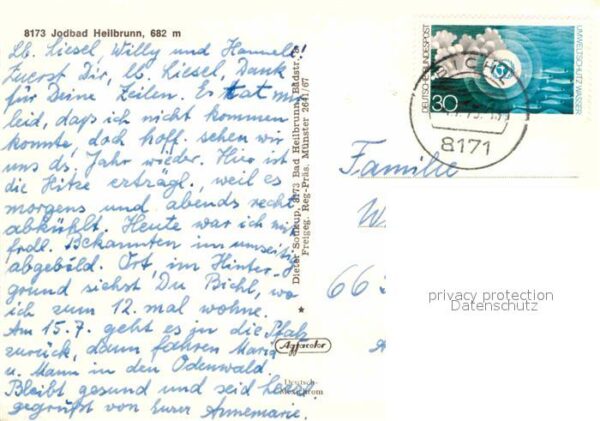 8173 Jodbad Heilbrunn, 682 m
Lb. Liesel, Willy und Hannele!
Zuerst Dir, lb. Liesel, Dank
für Deine Zeilen. Es tat mir
leid, daß ich nicht kommen
konnte, doch hoff. sehen wir
uns ds. Jahr wieder. Hier ist
die Hitze erträgl., weil es
morgens und abends recht
abkühlt. Heute war ich mit
frdl. Bekannten im umseitig
abgebild. Ort, im Hinter-
grund siehst Du Bichl, wo
ich zum 12. mal wohne.
Am 15.7. geht es in die Pfalz
zurück, dann fahren Maria
u. Mann in den Odenwald.
Bleibt gesund und seid herzl.
gegrüßt von Eurer Annemarie.
Dieter Soukup, 8173 Bad Heilbrunn, Badstr.
Freigeg. Reg-Präs. Münster 2641/67
Agfacolor
Deutsch-
DEUTSCHE BUNDESPOST
30
UMWELTSCHUTZ: WASSER
BICHL
8171
Familie
W
66
privacy protection
Datenschutz